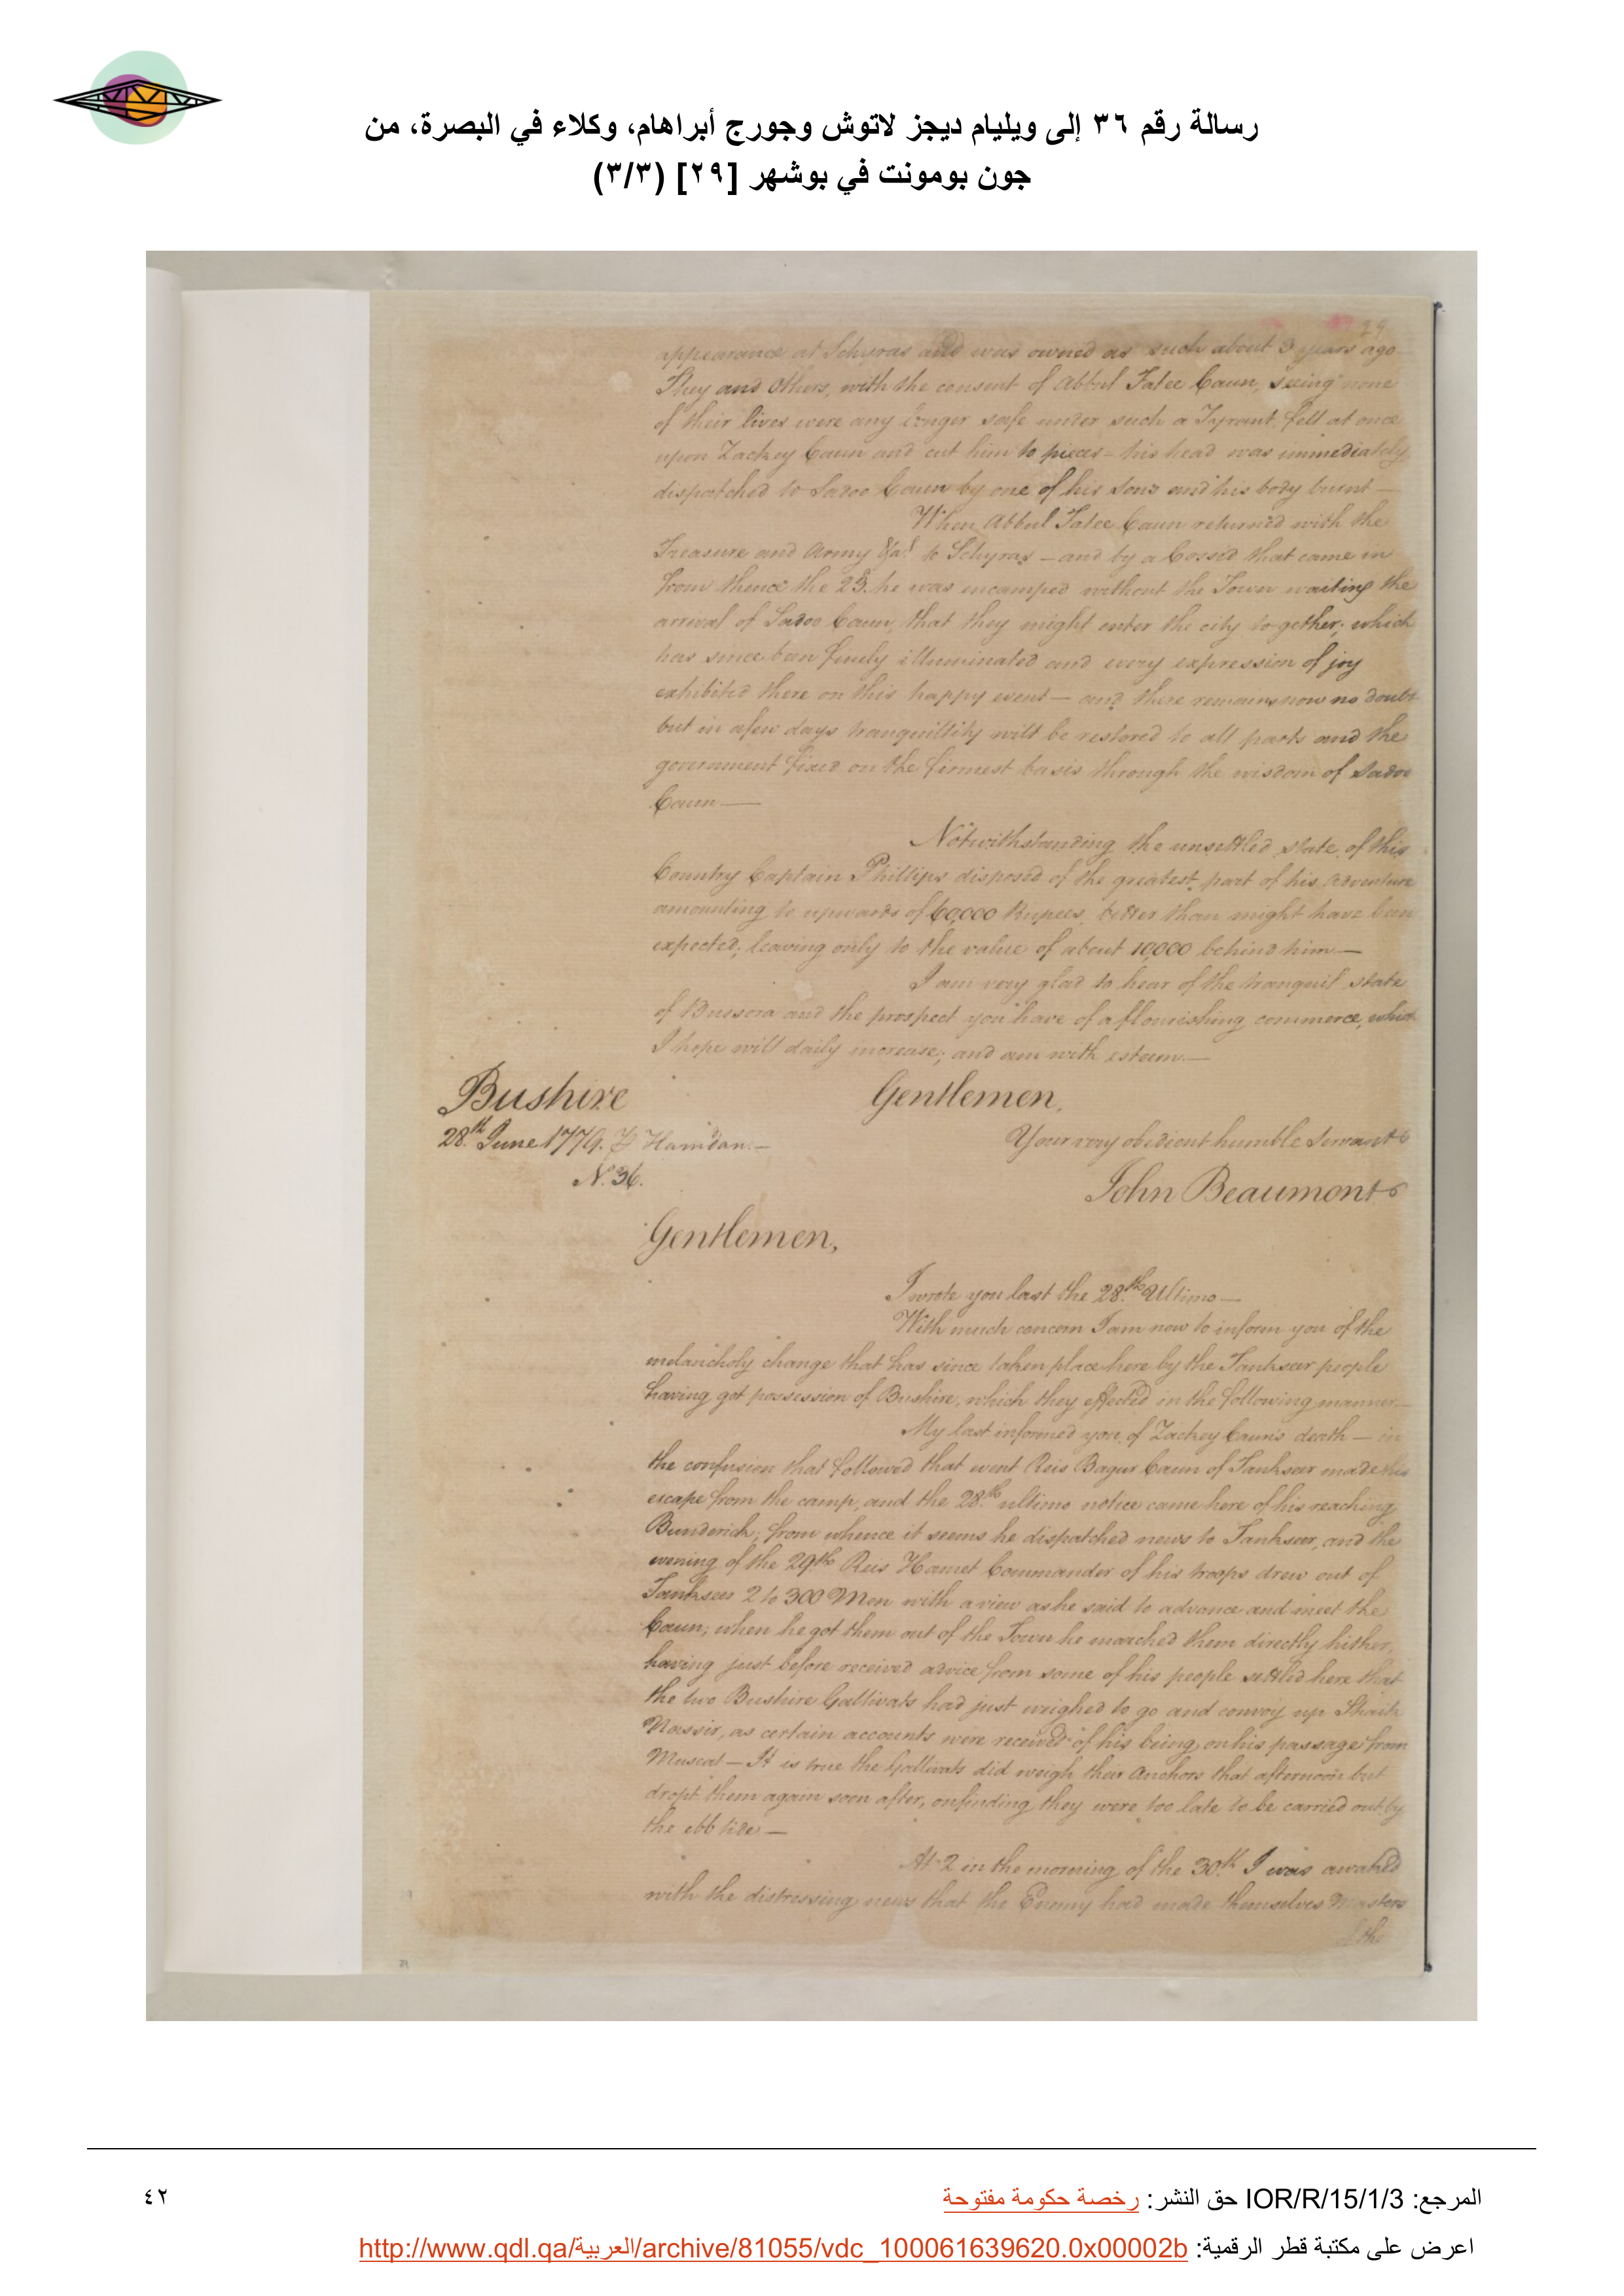 رسالة رقم ٣٦ إلى ويليام ديجز لاتوش وجورج أبراهام، وكلاء في البصرة، من
جون بومونت في بوشهر [٢٩] (٣/٣)
29
appearance at Schyras and was owned as such about 3 years ago
They and Others, with the consent of Abbul Fatee Caun, seeing none
of their lives were any longer safe under such a Tyrant, fell at once
upon Zackey Caun and cut him to pieces - his head was immediately
dispatched to Sadoo Caun by one of his sons and his body burnt —
When Abbul Fatee Caun returned with the
Treasure and Army &ca. to Schyras - and by a Cossid that came in
from thence the 23. he was encamped without the Town waiting the
arrival of Sadoo Caun, that they might enter the city to gether; which
has since been finely illuminated and every expression of joy
exhibited there on this happy event — and there remains now no doubt
but in a few days tranquillity will be restored to all parts and the
government fixed on the firmest basis through the wisdom of Sadoo
Caun —
Notwithstanding the unsettled state of this
Country Captain Phillips disposed of the greatest part of his Adventure
amounting to upwards of 60,000 Rupees, better than might have been
expected; leaving only to the value of about 10,000 behind him —
I am very glad to hear of the tranquil state
of Bussora and the prospect you have of a flourishing commerce, which
I hope will daily increase; and am with esteem —
Bushire
Gentlemen,
28.th June 1779. P Hamdan. —
Your very obedient humble Servant
N. 36.
John Beaumont
Gentlemen,
I wrote you last the 28.th Ultimo —
With much concern I am now to inform you of the
melancholy change that has since taken place here by the Tankseer people
having got possession of Bushire, which they effected in the following manner —
My last informed you of Zackey Caun's death — in
the confusion that followed that event Reis Bagur Caun of Tankseer made his
escape from the camp, and the 28.th ultimo notice came here of his reaching
Bunderick; from whence it seems he dispatched news to Tankseer, and the
evening of the 29.th Reis Hamet Commander of his troops drew out of
Tankseer 2 to 300 Men with a view as he said to advance and meet the
Caun; when he got them out of the Town he marched them directly hither,
having just before received advice from some of his people settled here that
the two Bushire Gallivats had just weighed to go and convoy up Shaik
Nassir, as certain accounts were received of his being on his passage from
Muscat — It is true the Gallivats did weigh their Anchors that afternoon but
dropt them again soon after, on finding they were too late to be carried out by
the ebb tide —
At 2 in the morning of the 30.th I was awaked
with the distressing news that the Enemy had made themselves Masters
of the
المرجع: IOR/R/15/1/3 حق النشر: رخصة حكومة مفتوحة
٤٢
اعرض على مكتبة قطر الرقمية: http://www.qdl.qa/العربية/archive/81055/vdc_100061639620.0x00002b